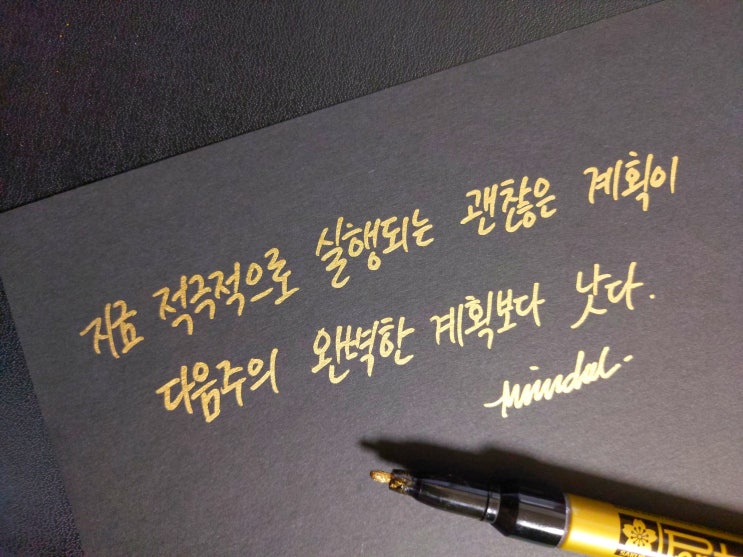 지금 적극적으로 실행되는 괜찮은 계획이
다음주의 완벽한 계획보다 낫다.